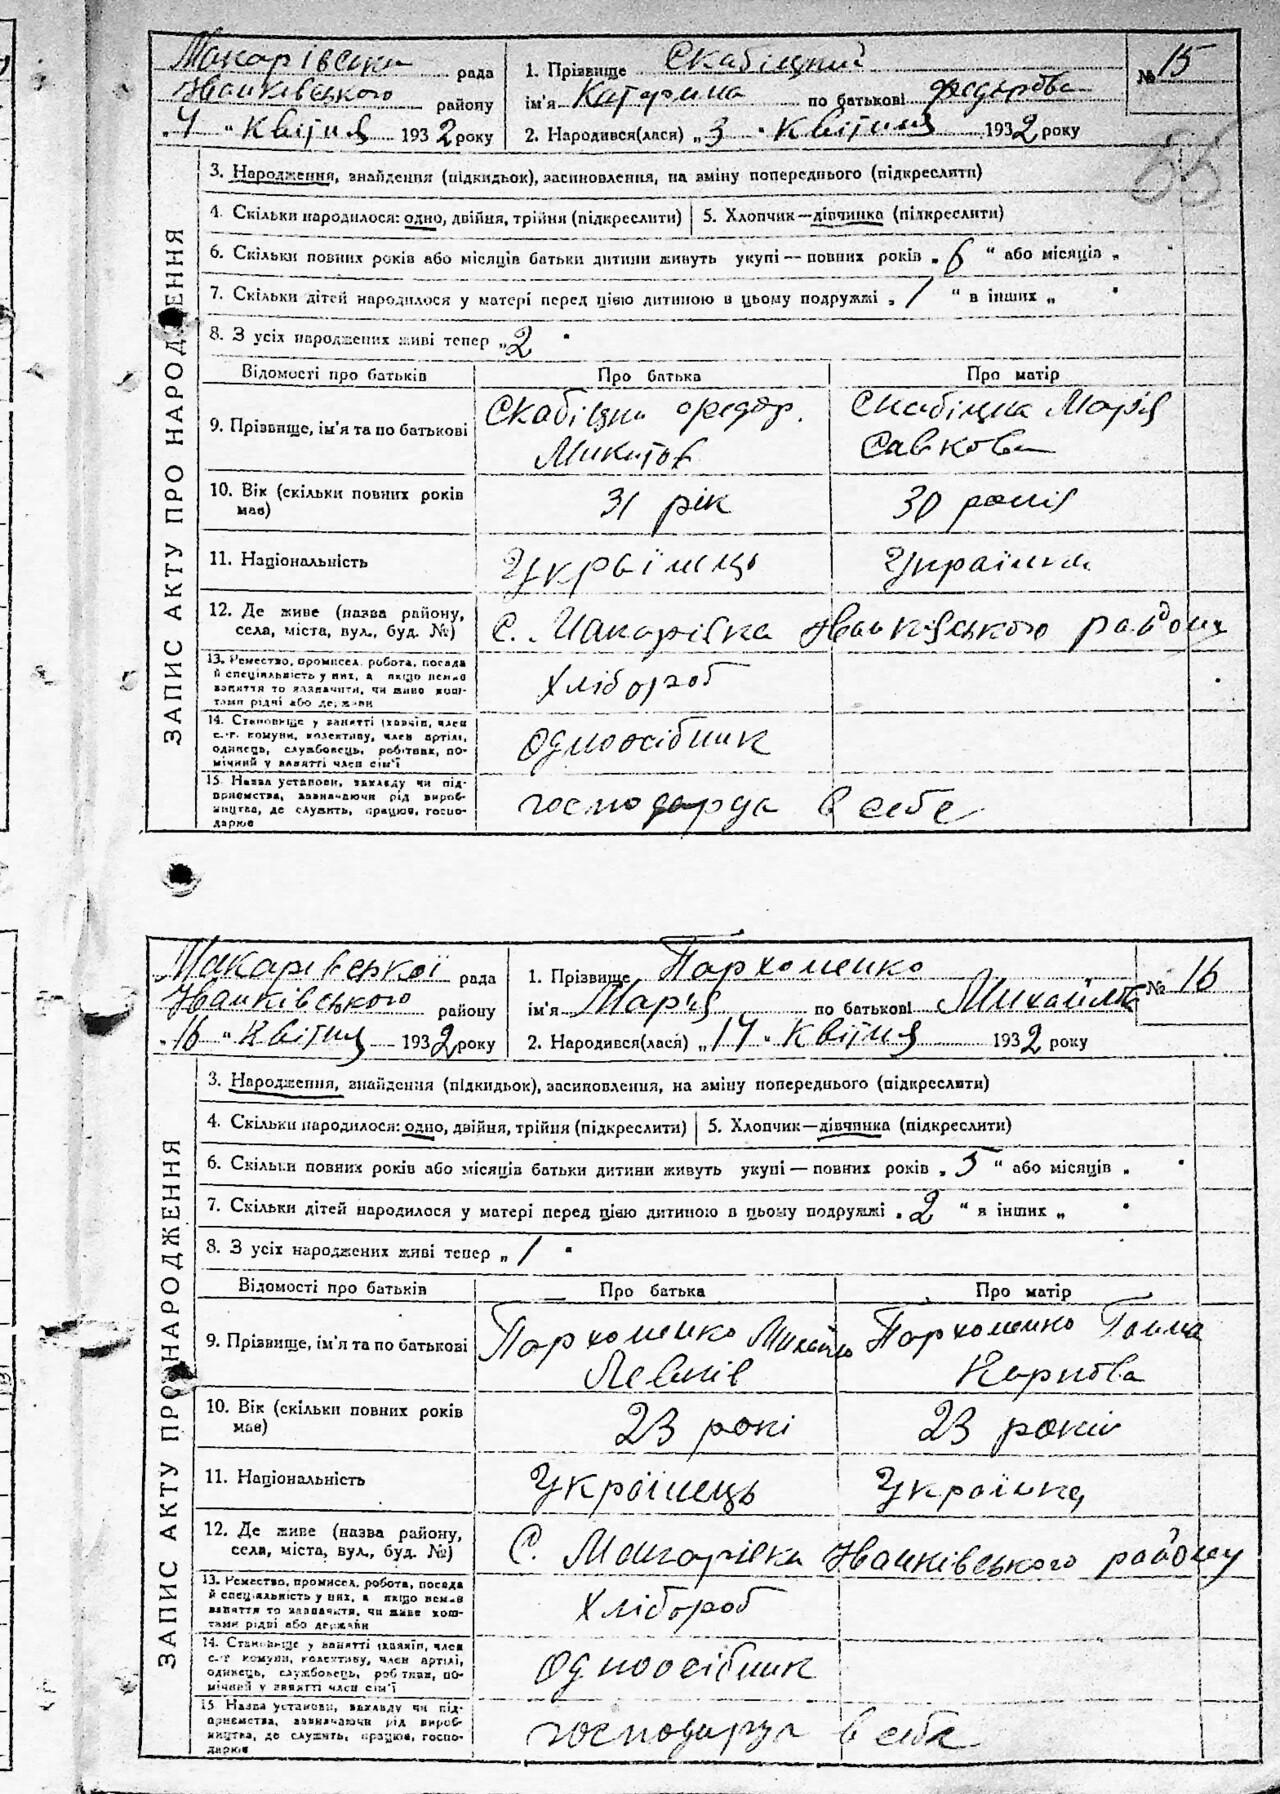 Макарівська рада
Іванківського району
„4“ квітня 1932 року
1. Прізвище Скабіцкий
ім'я Катерина по батькові Федорова
2. Народився(лася) „3“ квітня 1932 року
№ 15
55
ЗАПИС АКТУ ПРО НАРОДЖЕННЯ
3. Народження, знайдення (підкидьок), засиновлення, на зміну попереднього (підкреслити)
4. Скільки народилося: одно, двійня, трійня (підкреслити) 5. Хлопчик—дівчинка (підкреслити)
6. Скільки повних років або місяців батьки дитини живуть укупі — повних років „6“ або місяців „ “
7. Скільки дітей народилося у матері перед цією дитиною в цьому подружжі „1“ в інших „ “
8. З усіх народжених живі тепер „2“
Відомості про батьків Про батька Про матір
9. Прізвище, ім'я та по батькові
Скабіцки Федор.
Микитов
Скабіцка Марія
Савкова
10. Вік (скільки повних років
має)
31 рік 30 років
11. Національність Українець Українка
12. Де живе (назва району,
села, міста, вул., буд. №)
с. Макарівка Іванківського району
13. Ремество, промисел, робота, посада
й спеціяльність у них, а якщо немає
заняття то зазначити, чи живе кош-
тами рідні або держави
Хлібороб
14. Становище у занятті (хазяїн, член
с.-г. комуни, колективу, член артілі,
одинець, службовець, робітник, по-
мічний у занятті член сім'ї
Одноосібник
15. Назва установи, закладу чи під-
приємства, зазначаючи рід вироб-
ництва, де служить, працює, госпо-
дарює
господарує в себе
Макарівської рада
Іванківського району
„16“ квітня 1932 року
1. Прізвище Пархоменко
ім'я Марія по батькові Михайлова
2. Народився(лася) „14“ квітня 1932 року
№ 16
ЗАПИС АКТУ ПРО НАРОДЖЕННЯ
3. Народження, знайдення (підкидьок), засиновлення, на зміну попереднього (підкреслити)
4. Скільки народилося: одно, двійня, трійня (підкреслити) 5. Хлопчик—дівчинка (підкреслити)
6. Скільки повних років або місяців батьки дитини живуть укупі — повних років „5“ або місяців „ “
7. Скільки дітей народилося у матері перед цією дитиною в цьому подружжі „2“ в інших „ “
8. З усіх народжених живі тепер „1“
Відомості про батьків Про батька Про матір
9. Прізвище, ім'я та по батькові
Пархоменко Михайло
Левків
Пархоменко Ганна
Карпова
10. Вік (скільки повних років
має)
23 рокі 23 років
11. Національність Українець Українка
12. Де живе (назва району,
села, міста, вул., буд. №)
С. Макарівка Іванківського району
13. Ремество, промисел, робота, посада
й спеціяльність у них, а якщо немає
заняття то зазначити, чи живе кош-
тами рідні або держави
Хлібороб
14. Становище у занятті (хазяїн, член
с.-г. комуни, колективу, член артілі,
одинець, службовець, робітник, по-
мічний у занятті член сім'ї
Одноосібник
15. Назва установи, закладу чи під-
приємства, зазначаючи рід вироб-
ництва, де служить, працює, госпо-
дарює
господарує в себе